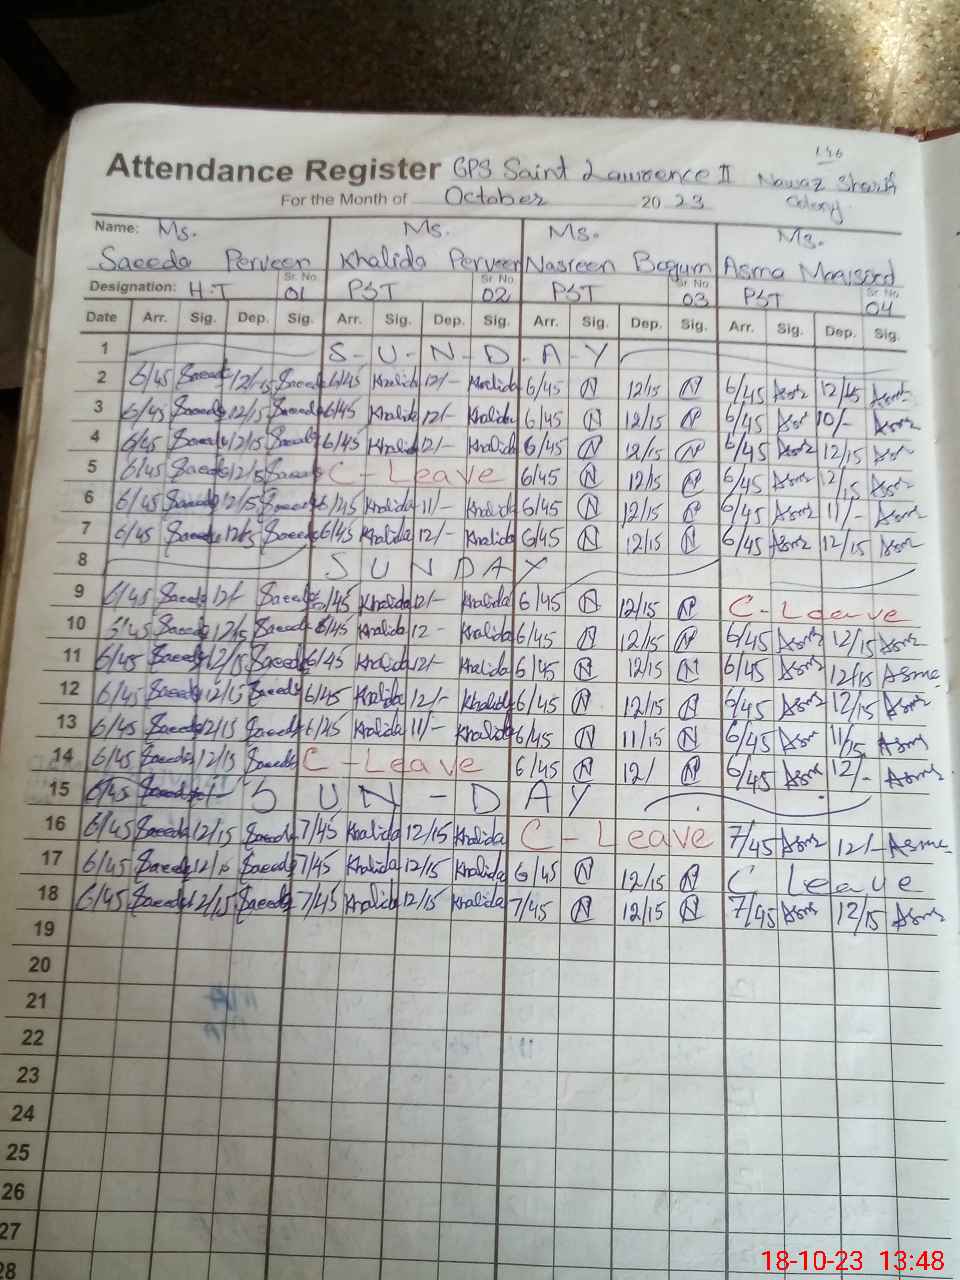 146
Attendance Register GPS Saint Lawrence II Nawaz Sharif
For the Month of October 2023 Colony
Name: Ms. Ms. Ms. Ms.
Saeeda Perveen Khalida Perveen Nasreen Begum Asma
Designation: H.T Sr. No. 01 PST Sr. No. 02 PST Sr. No. 03 PST Sr. No. 04
Date Arr. Sig. Dep. Sig. Arr. Sig. Dep. Sig. Arr. Sig. Dep. Sig. Arr. Sig. Dep. Sig.
1 S-U-N-D-A-Y
2 6/45 Saeeda 12/15 Saeeda 6/45 Khalida 12/- Khalida 6/45 N 12/15 N 6/45 Asma 12/45 Asma
3 6/45 Saeeda 12/15 Saeeda 6/45 Khalida 12/- Khalida 6/45 N 12/15 N 6/45 Asma 10/- Asma
4 6/45 Saeeda 12/15 Saeeda 6/45 Khalida 12/- Khalida 6/45 N 12/15 N 6/45 Asma 12/15 Asma
5 6/45 Saeeda 12/15 Saeeda C-Leave 6/45 N 12/15 N 6/45 Asma 12/15 Asma
6 6/45 Saeeda 12/15 Saeeda 6/45 Khalida 11/- Khalida 6/45 N 12/15 N 6/45 Asma 11/- Asma
7 6/45 Saeeda 12/15 Saeeda 6/45 Khalida 12/- Khalida 6/45 N 12/15 N 6/45 Asma 12/15 Asma
8 S U N D A Y
9 6/45 Saeeda 12/- Saeeda 6/45 Khalida 12/- Khalida 6/45 N 12/15 N C-Leave
10 6/45 Saeeda 12/15 Saeeda 6/45 Khalida 12- Khalida 6/45 N 12/15 N 6/45 Asma 12/15 Asma
11 6/45 Saeeda 12/15 Saeeda 6/45 Khalida 12/- Khalida 6/45 N 12/15 N 6/45 Asma 12/15 Asma
12 6/45 Saeeda 12/15 Saeeda 6/45 Khalida 12/- Khalida 6/45 N 12/15 N 6/45 Asma 12/15 Asma
13 6/45 Saeeda 12/15 Saeeda 6/45 Khalida 11/- Khalida 6/45 N 11/15 N 6/45 Asma 11/15 Asma
14 6/45 Saeeda 12/15 Saeeda C-Leave 6/45 N 12/ N 6/45 Asma 12/- Asma
15 6/45 S U N - D A Y
16 6/45 Saeeda 12/15 Saeeda 7/45 Khalida 12/15 Khalida C-Leave 7/45 Asma 12/- Asma
17 6/45 Saeeda Saeeda 7/45 Khalida 12/15 Khalida 6/45 N 12/15 N C Leave
18 6/45 Saeeda 12/15 Saeeda 7/45 Khalida 12/15 Khalida 7/45 N 12/15 N 7/45 Asma 12/15 Asma
19
20
21
22
23
24
25
26
27
28
18-10-23 13:48